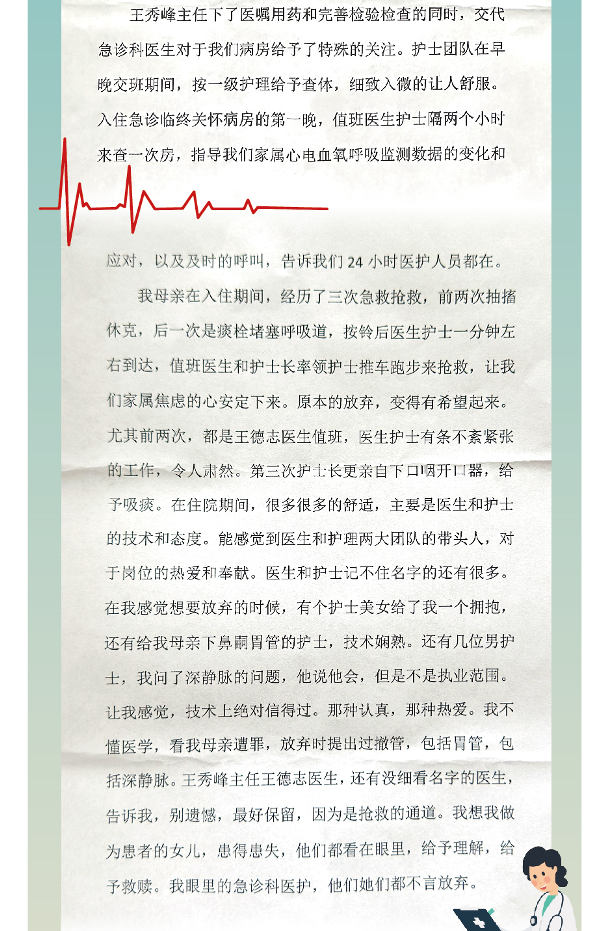 王秀峰主任下了医嘱用药和完善检验检查的同时，交代
急诊科医生对于我们病房给予了特殊的关注。护士团队在早
晚交班期间，按一级护理给予查体，细致入微的让人舒服。
入住急诊临终关怀病房的第一晚，值班医生护士隔两个小时
来查一次房，指导我们家属心电血氧呼吸监测数据的变化和
应对，以及及时的呼叫，告诉我们 24 小时医护人员都在。
我母亲在入住期间，经历了三次急救抢救，前两次抽搐
休克，后一次是痰栓堵塞呼吸道，按铃后医生护士一分钟左
右到达，值班医生和护士长率领护士推车跑步来抢救，让我
们家属焦虑的心安定下来。原本的放弃，变得有希望起来。
尤其前两次，都是王德志医生值班，医生护士有条不紊紧张
的工作，令人肃然。第三次护士长更亲自下口咽开口器，给
予吸痰。在住院期间，很多很多的舒适，主要是医生和护士
的技术和态度。能感觉到医生和护理两大团队的带头人，对
于岗位的热爱和奉献。医生和护士记不住名字的还有很多。
在我感觉想要放弃的时候，有个护士美女给了我一个拥抱，
还有给我母亲下鼻嗣胃管的护士，技术娴熟。还有几位男护
士，我问了深静脉的问题，他说他会，但是不是执业范围。
让我感觉，技术上绝对信得过。那种认真，那种热爱。我不
懂医学，看我母亲遭罪，放弃时提出过撤管，包括胃管，包
括深静脉。王秀峰主任王德志医生，还有没细看名字的医生，
告诉我，别遗憾，最好保留，因为是抢救的通道。我想我做
为患者的女儿，患得患失，他们都看在眼里，给予理解，给
予救赎。我眼里的急诊科医护，他们她们都不言放弃。